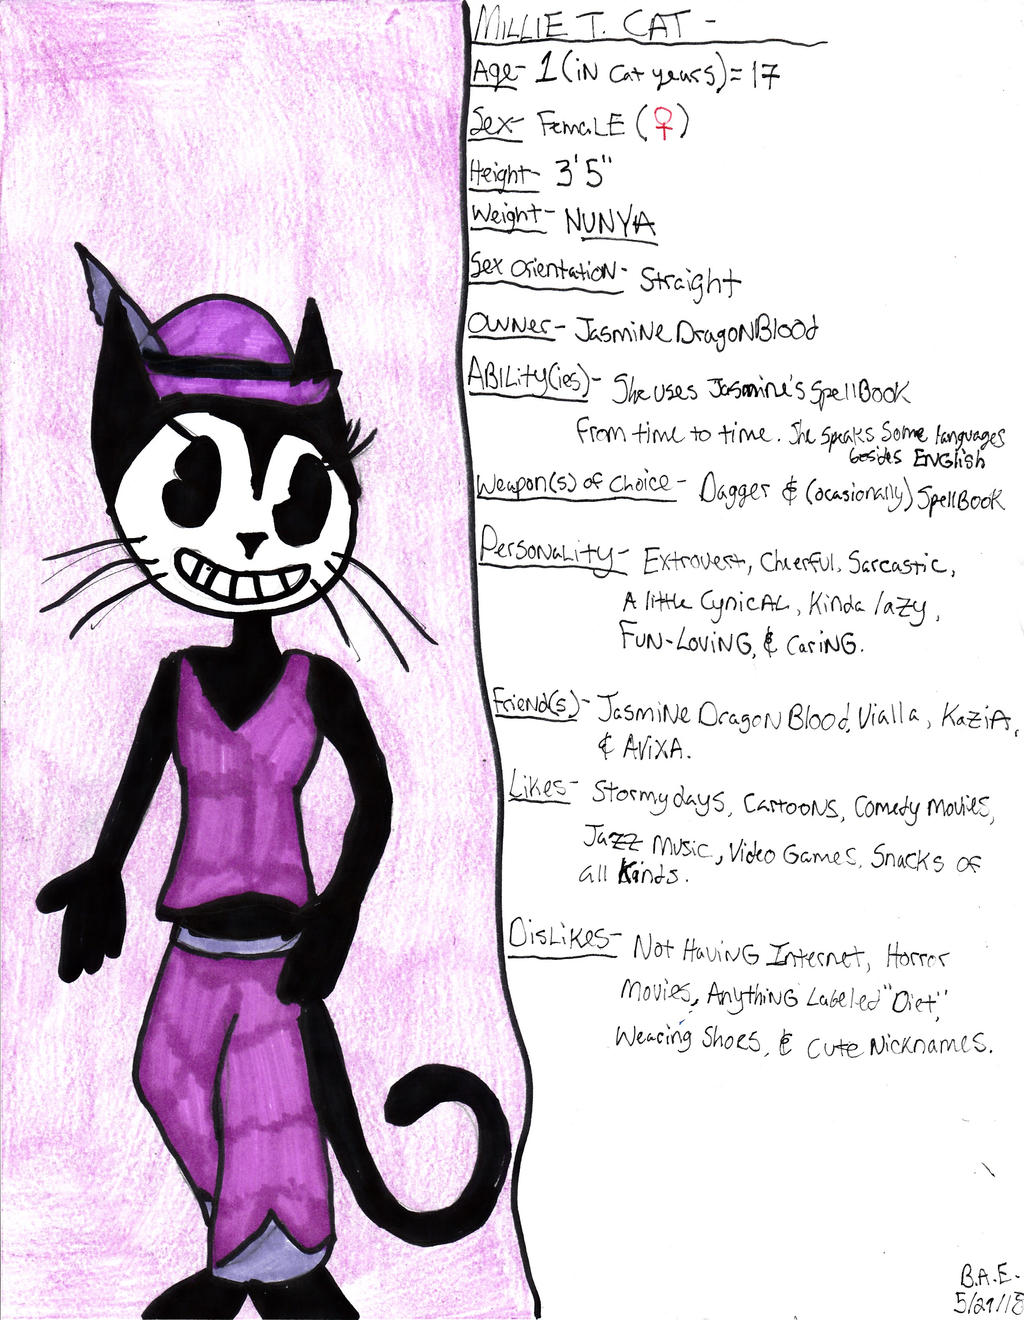 MILLIE T. CAT -
Age- 1 (iN Cat years) = 17
Sex- FemaLE (♀)
Height- 3'5"
Weight- NUNYA
Sex Orientation- Straight
Owner- JasmiNe DragoNBlood
ABILity(ies)- She uses Jasmine's SpellBook
From time to time. She speaks Some languages
besides ENGlish
Weapon(s) of Choice- Dagger & (ocasionally) SpellBook
Personality- Extrovert, Cheerful, Sarcastic,
A little CyniCAL, Kinda lazy,
FUN-LoviNG, & CariNG.
Friend(s)- JasmiNe DragoN Blood, Vialla, KaziA,
& AvixA.
Likes- Stormy days, CartooNs, Comedy Movies,
Jazz Music, Video Games, Snacks of
all Kinds.
DisLikes- Not HaviNG Internet, Horror
Movies, AnythiNG Labeled "Diet",
Wearing Shoes, & Cute Nicknames.
B.A.E.